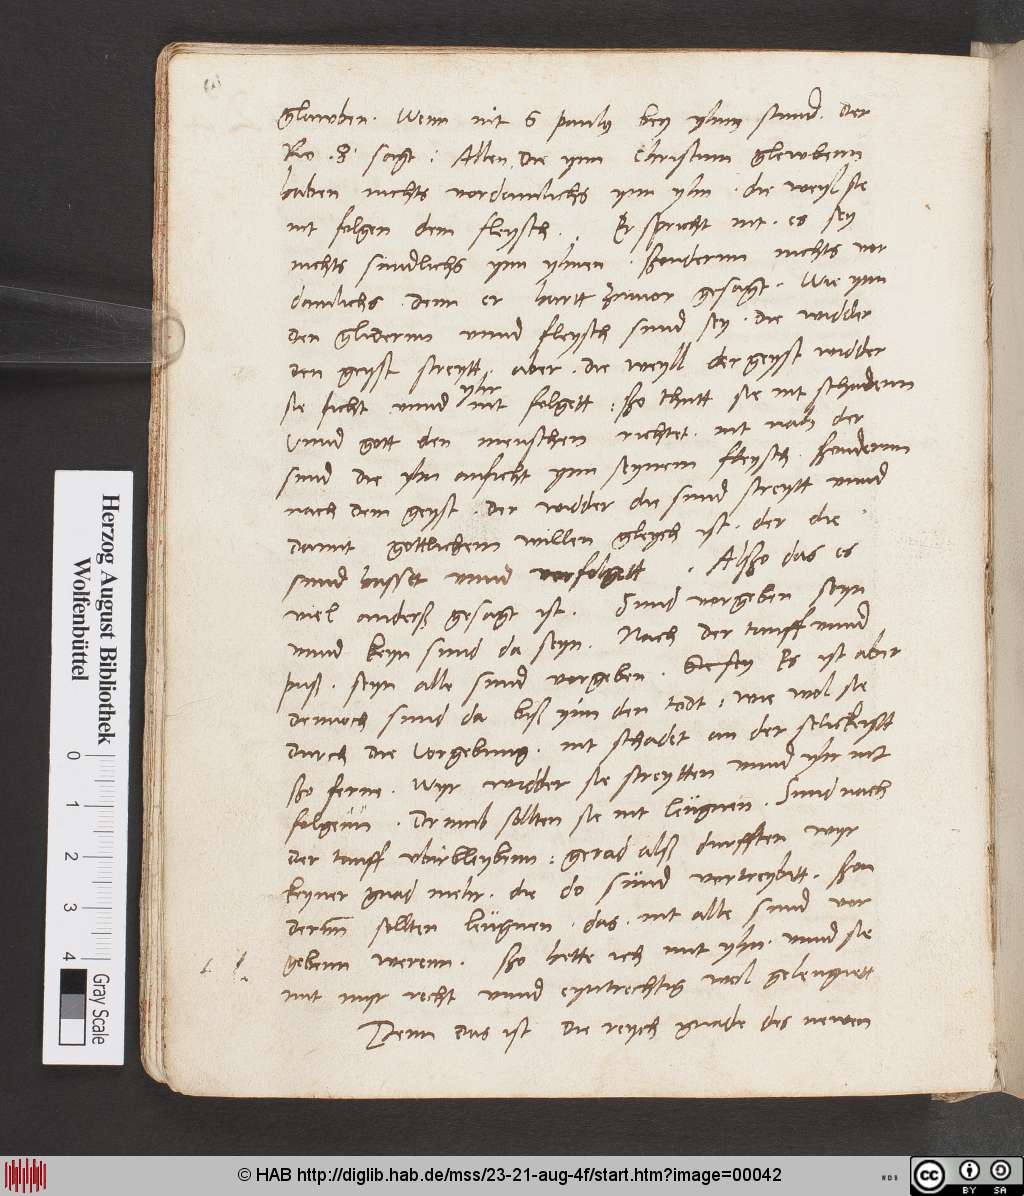 glawben. Wenn nit S paulus bey yhm stund. der
Ro .8. sagt: Allen die ynn Christum glewbenn
haben nichts vordamlichs ynn yhn. die weyl sie
nit folgen dem fleysch. Er spricht nit. es sey
nichts sundlichs ynn yhnen. ßondernn nichts vor
damlichs. denn er hatt zuuor gesagt. Wie ynn
den glidernn vnnd fleysch sund sey. die widder
den geyst streytt. aber. die weyll der geyst widder
sie ficht vnnd yhr nit folgett: ßo thutt sie nit schadenn
Vnnd gott den menschen richtet. nit nach der
sund die yhn anficht ynn seynem fleysch. ßondernn
nach dem geyst. der widder die sund streytt vnnd
damit gottlichem willen gleych ist. der die
sund hasset vnnd vorfolgett. Alßo das es
viel anderß gesagt ist. Sund vorgeben seyn
vnnd keyn sund da seyn. Nach der tauff vnnd
puß. seyn alle sund vorgeben. Es ist aber
dennoch sund da biß ynn den todt: wie wol sie
durch die Vorgebung. nit schadet an der selickeytt
ßo ferne. Wyr widder sie streytten vnnd yhr nit
folgenn. Drumb sollten sie nit leugnen. Sund nach
der tauff vbirbleybenn: gerad alß durfften wyr
keyner gnad mehr. die do sund vortreybtt. ßon
dernn sollten leugnen. das. nit alle sund vor
gebenn werenn. ßo hette ich mit yhn. vnnd sie
mit myr recht vnnd eyntrechtig wol geleugnett
Denn das ist die reych gnade des newen
Herzog August Bibliothek
Wolfenbüttel
0 1 2 3 4
Gray Scale
© HAB http://diglib.hab.de/mss/23-21-aug-4f/start.htm?image=00042
WDB
cc BY SA